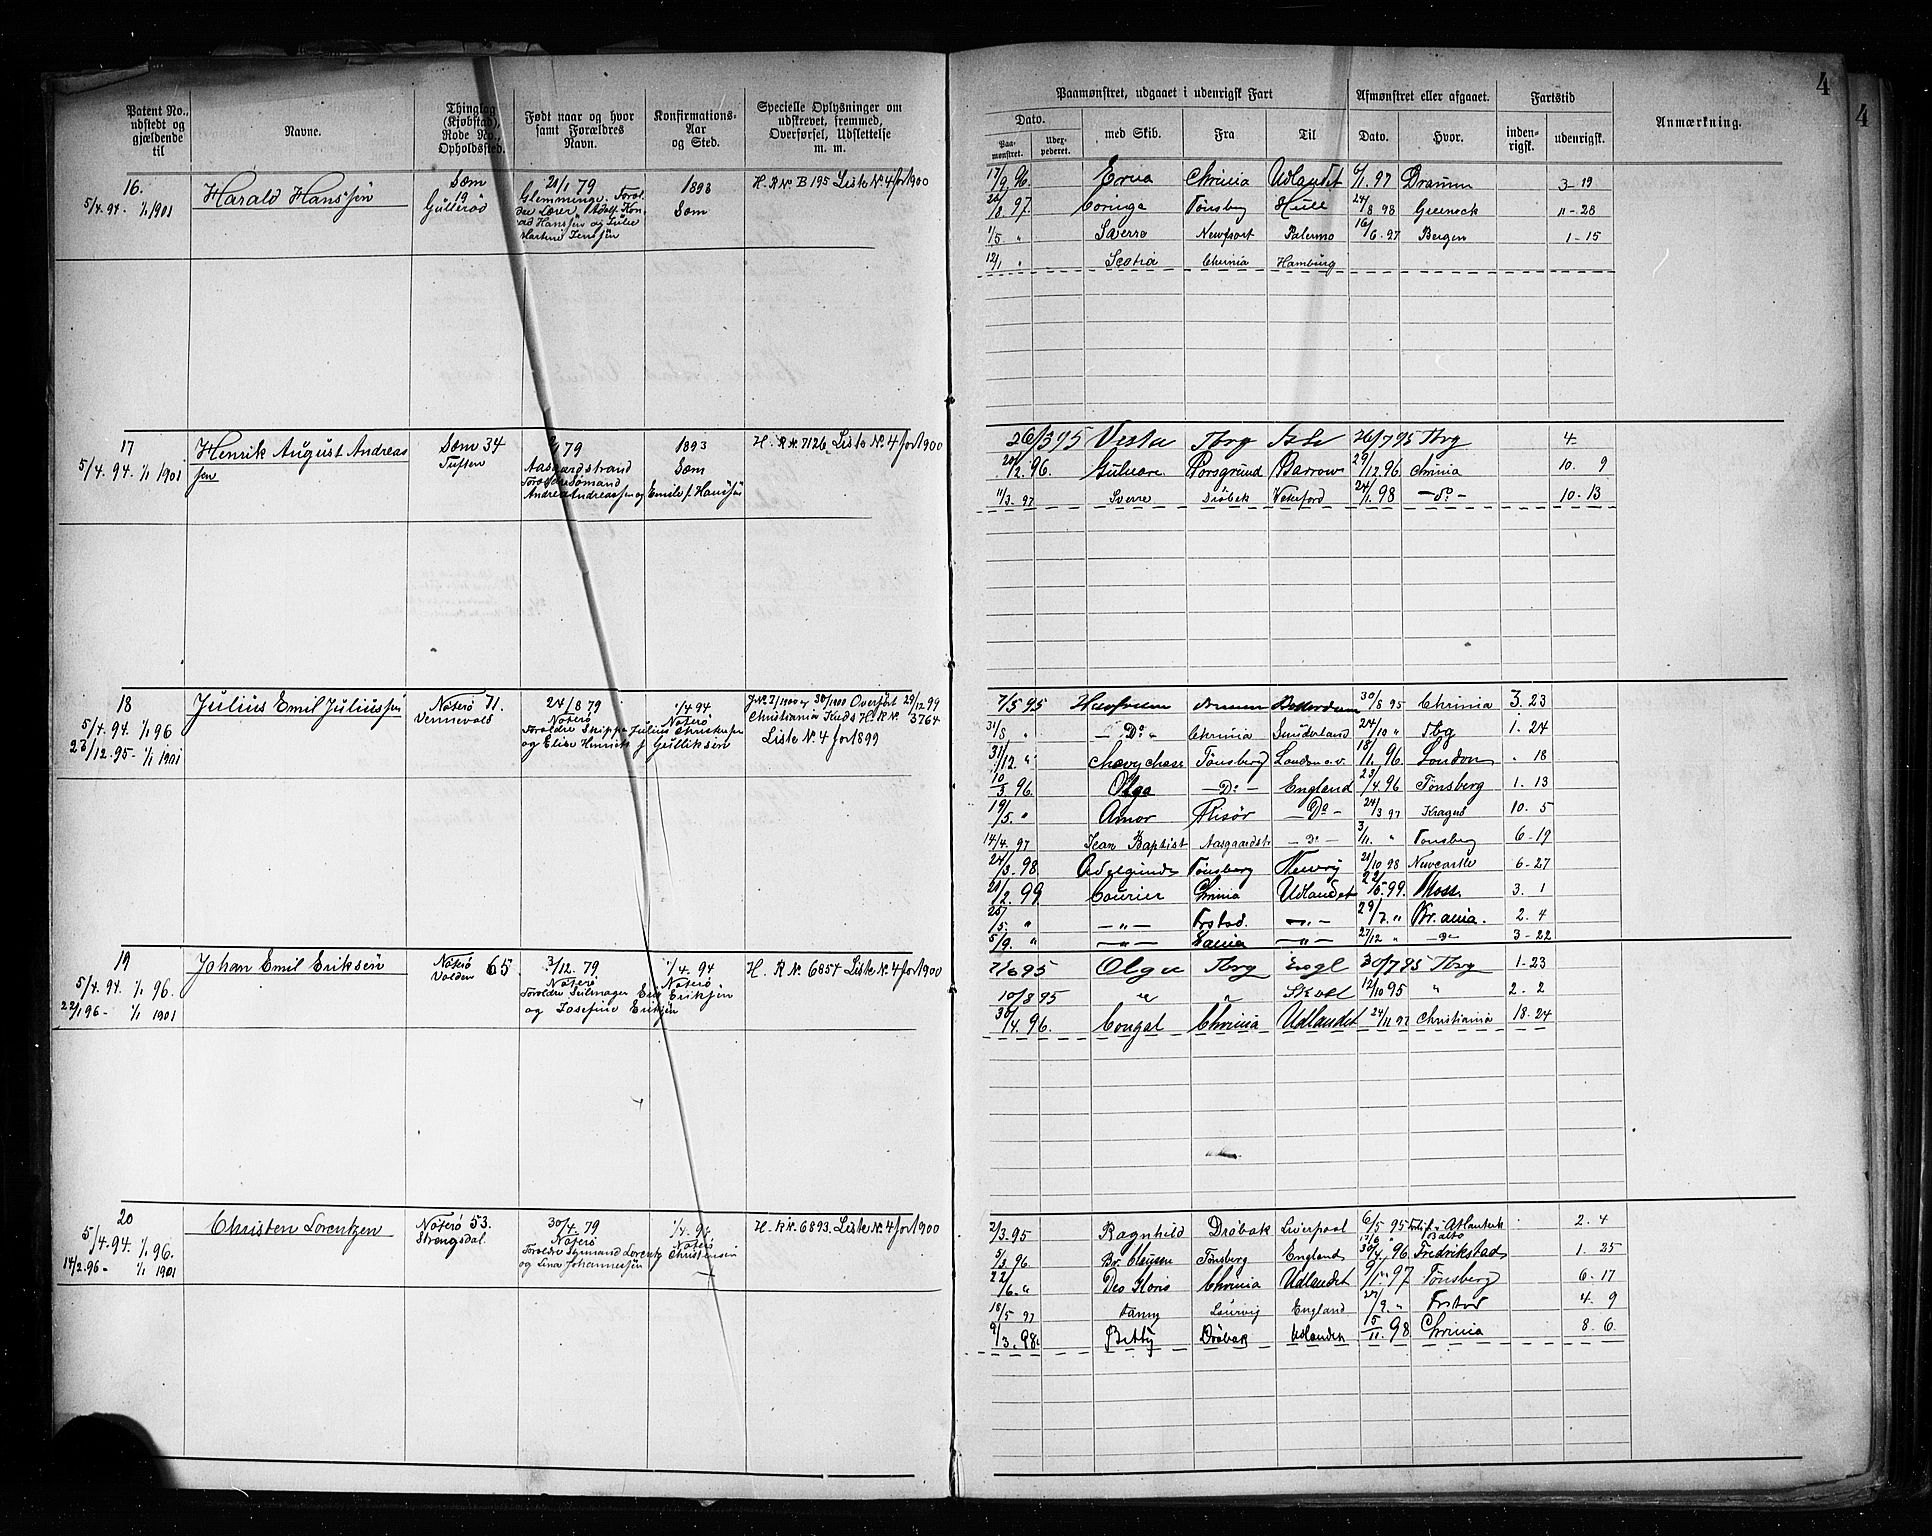 4
4
Patent No., udstedt og gjældende til
Navne.
Thinglag (Kjøbstad), Rode No., Opholdssted.
Født naar og hvor samt Forældres Navn.
Konfirmations-Aar og Sted.
Specielle Oplysninger om udskrevet, fremmed, Overførsel, Udslettelse m. m.
Paamønstret, udgaaet i udenrigsk Fart
Afmønstret eller afgaaet.
Fartstid
Anmærkning.
Dato.
med Skib.
Fra
Til
Dato.
Hvor.
inden-rigsk.
udenrigsk.
Paa-mønstret.
Uder-pederet.
16.
5/4. 94. 1/1 1901
Harald Hanssen
Sæm 19 Gulleröd
21/1 79
Glemminge. Foræl
Martine Jenssen
1893
Sæm
H. R No B 195 Liste No. 4 for 1900
17/9 96 Erna Chrinia Udlandet 4/1. 97 Dramm 3 - 19
Coringa Tönsberg Hull 24/8 98 Greenock 11 - 28
1/5 " Sverre Newport Palermo 16/6. 97 Bergen 1 - 15
12/1 " Scotia Chrinia Hamburg
17
5/4. 94. 1/1 1901
Henrik August Andreas
sen
Sæm 34
Tuften
79
Aasgaardstrand
Forældre Sömand
Andrea Andreassen og Emilie f. Hanssen
1893
Sæm
H. R No. 7126. Liste No. 4 for 1900
26/3 95 Vesta Tbrg 26/7 95 Tbrg 4
20/2. 96. Gulnare Porsgrund Barrow 29/12. 96 Chrinia 10. 9
11/3. 97 Sverre Dröbak 24/1. 98 - Do - 10. 13
18
5/4. 94 1/1 96
23/12. 95 - 1/1 1901
Julius Emil Juliussen
Nöterö 71.
Vennevold
24/8 79
Nöterö
Forældre Skipper Julius Christophersen
og Elise Henriette f Gulliksen
1/4 94
Nöterö
J No. 2/1900 og 30/1900 Overfört 29/12 99
Christiania Kreds H. R No. 3764
Liste No. 4 for 1899
7/5 95 30/8 95 Chrinia 3. 23
31/8 " - Do - Chrinia Sunderland 24/10 " Tbg 1. 24
31/12. " Chevy chase Tönsberg London o. v. 18/1. 96. London . 18
10/3 96. Olga - Do - England 23/4 96 Tönsberg 1. 13
19/5. " Amor Risör - Do - 24/3 97 Kragerö 10. 5
14/4. 97 Jean Baptist Aasgaardstr - Do - 3/11. " Tonsberg 6 - 19
24/3. 98 Adelgunde Tönsberg Newry 21/10 98 Newcastle 6 - 27
21/2. 99 Courier Chrinia Udlandet 22/5. 99. Moss 3. 1
25/5. " - " - Frstad. - " - 29/7. " Kr. ania. 2. 4
5/9. " - " - - " - 27/12 " - Do - 3 - 22
19
5/4. 94. 1/1 96.
22/1 96 - 1/1 1901
Johan Emil Eriksen
Nöterö 65
Volden
3/12. 79.
Nöterö
Forældre Seilmager Erik Eriksen
og Josefine Eriksen
1/4. 94
Nöterö
H. R No 6857 Liste No. 4 for 1900
7/6 95 Olga Tbrg Engl 30/7 95 Tbrg 1 - 23
10/8 95 " " Skotl 12/10 95 " 2 - 2
30/4. 96. Cougal Chrinia Udlandet 24/11 97 Christiania 18. 24
20
5/4. 94. 1/1 96.
14/2. 96 - 1/1 1901
Christen Lorentzen
Nöterö 53.
Strengsdal.
30/4. 79
Nöterö
Forældre Sömand Lorentz Christensen
og Lina Johannessen
1/4. 94
Nöterö
H. R No. 6893. Liste No. 4 for 1900
2/3. 95 Ragnhild Dröbak Liverpool 6/5 95 Forlist i Atlanterh 2. 4
5/3. 96 Br. Clausen Tönsberg England 30/4. 96 Fredrikstad 1. 25
22/6. " Chrinia Udlandet 9/1. 97 Tönsberg 6. 17
18/5 97 Fanny Laurvig England 22/9. " Frstad 4. 9
9/3. 98. Betty Dröbak Udlandet 15/11. 98 Chrinia 8. 6